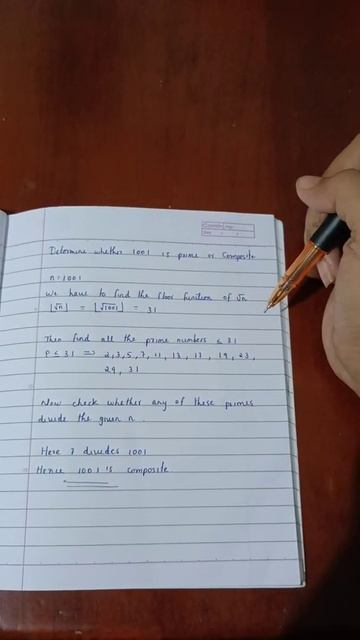 Determine whether 1001 is prime or composite
n = 1001
We have to find the floor function of √n
⌊√n⌋ = ⌊√1001⌋ = 31
Then find all the prime numbers ≤ 31
P ≤ 31 ⇒ 2, 3, 5, 7, 11, 13, 17, 19, 23,
29, 31
Now check whether any of these primes
divide the given n.
Here 7 divides 1001
Hence 1001 is composite.